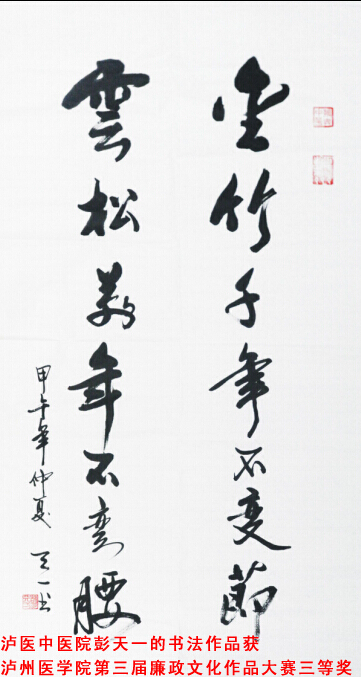 竹千年不变節
雲松萬年不弯腰
甲午年仲夏 天一书
泸医中医院彭天一的书法作品获
泸州医学院第三届廉政文化作品大赛三等奖